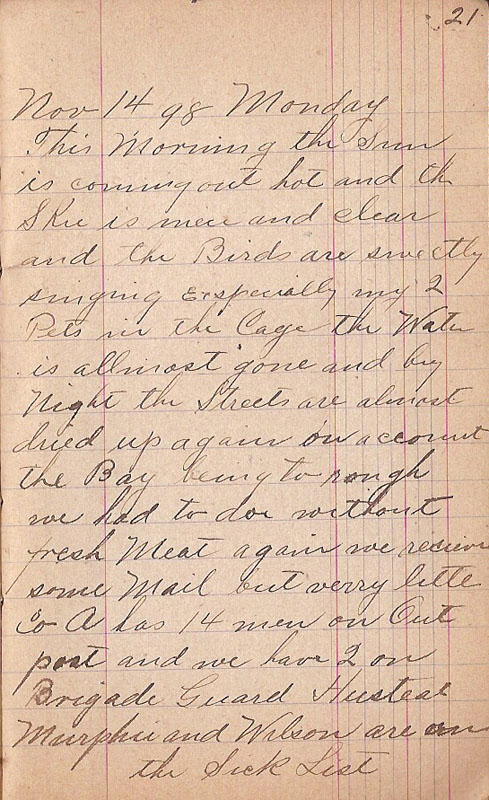 21
Nov 14 98 Monday
This Morning the Sun
is coming out hot and th
SKie is nice and clear
and the Birds are sweetly
singing Eespecially my 2
Pets in the Cage the Water
is allmost gone and by
Night the Streets are almost
dried up again on account
the Bay being to rough
we had to doe without
fresh Meat again we recieve
some Mail but verry little
Co A has 14 men on Out
post and we have 2 on
Brigade Guard Husteal
Murphie and Wilson are on
the Sick List